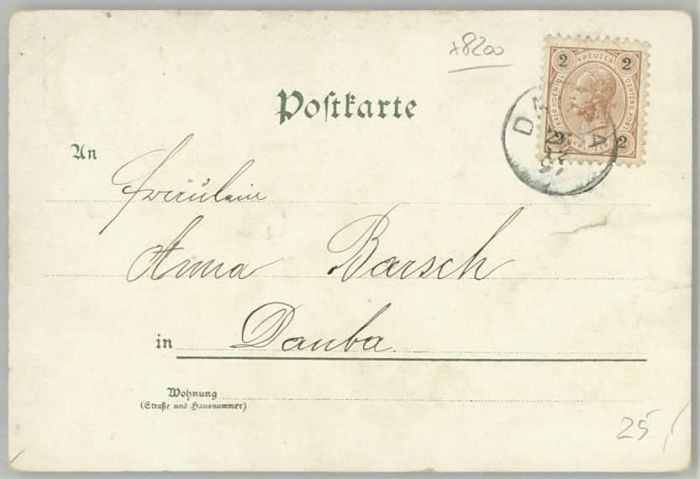 x8200
2 KREUZER 2
2 2
Postkarte
An
Fräulein
Anna Barsch
in Dauba.
Wohnung
(Straße und Hausnummer)
25,/